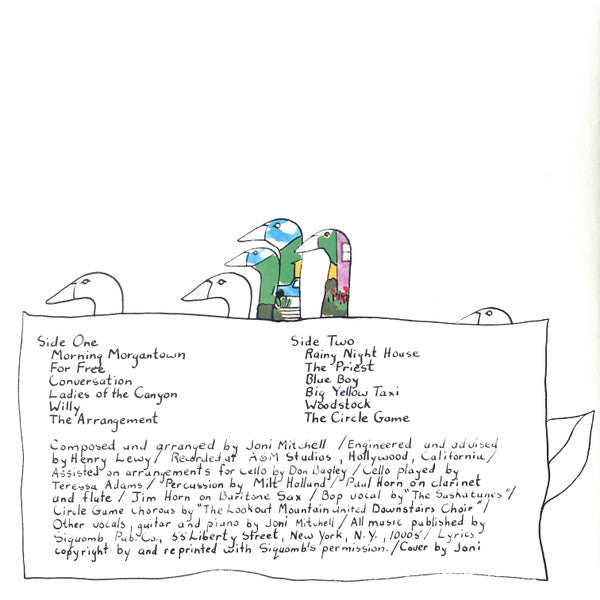 Side One
Morning Morgantown
For Free
Conversation
Ladies of the Canyon
Willy
The Arrangement
Side Two
Rainy Night House
The Priest
Blue Boy
Big Yellow Taxi
Woodstock
The Circle Game
Composed and arranged by Joni Mitchell / Engineered and advised
by Henry Lewy / Recorded at A&M Studios, Hollywood, California /
Assisted on arrangements for Cello by Don Bagley / Cello played by
Teressa Adams / Percussion by Milt Holland / Paul Horn on clarinet
and flute / Jim Horn on Baritone Sax / Bop vocal by "The Saskatunes" /
Circle Game chorous by "The Lookout Mountain united Downstairs Choir" /
Other vocals, guitar and piano by Joni Mitchell / All music published by
Siquomb Pub. Co., 55 Liberty Street, New York, N.Y., 10005 / Lyrics
copyright by and reprinted with Siquomb's permission. / Cover by Joni